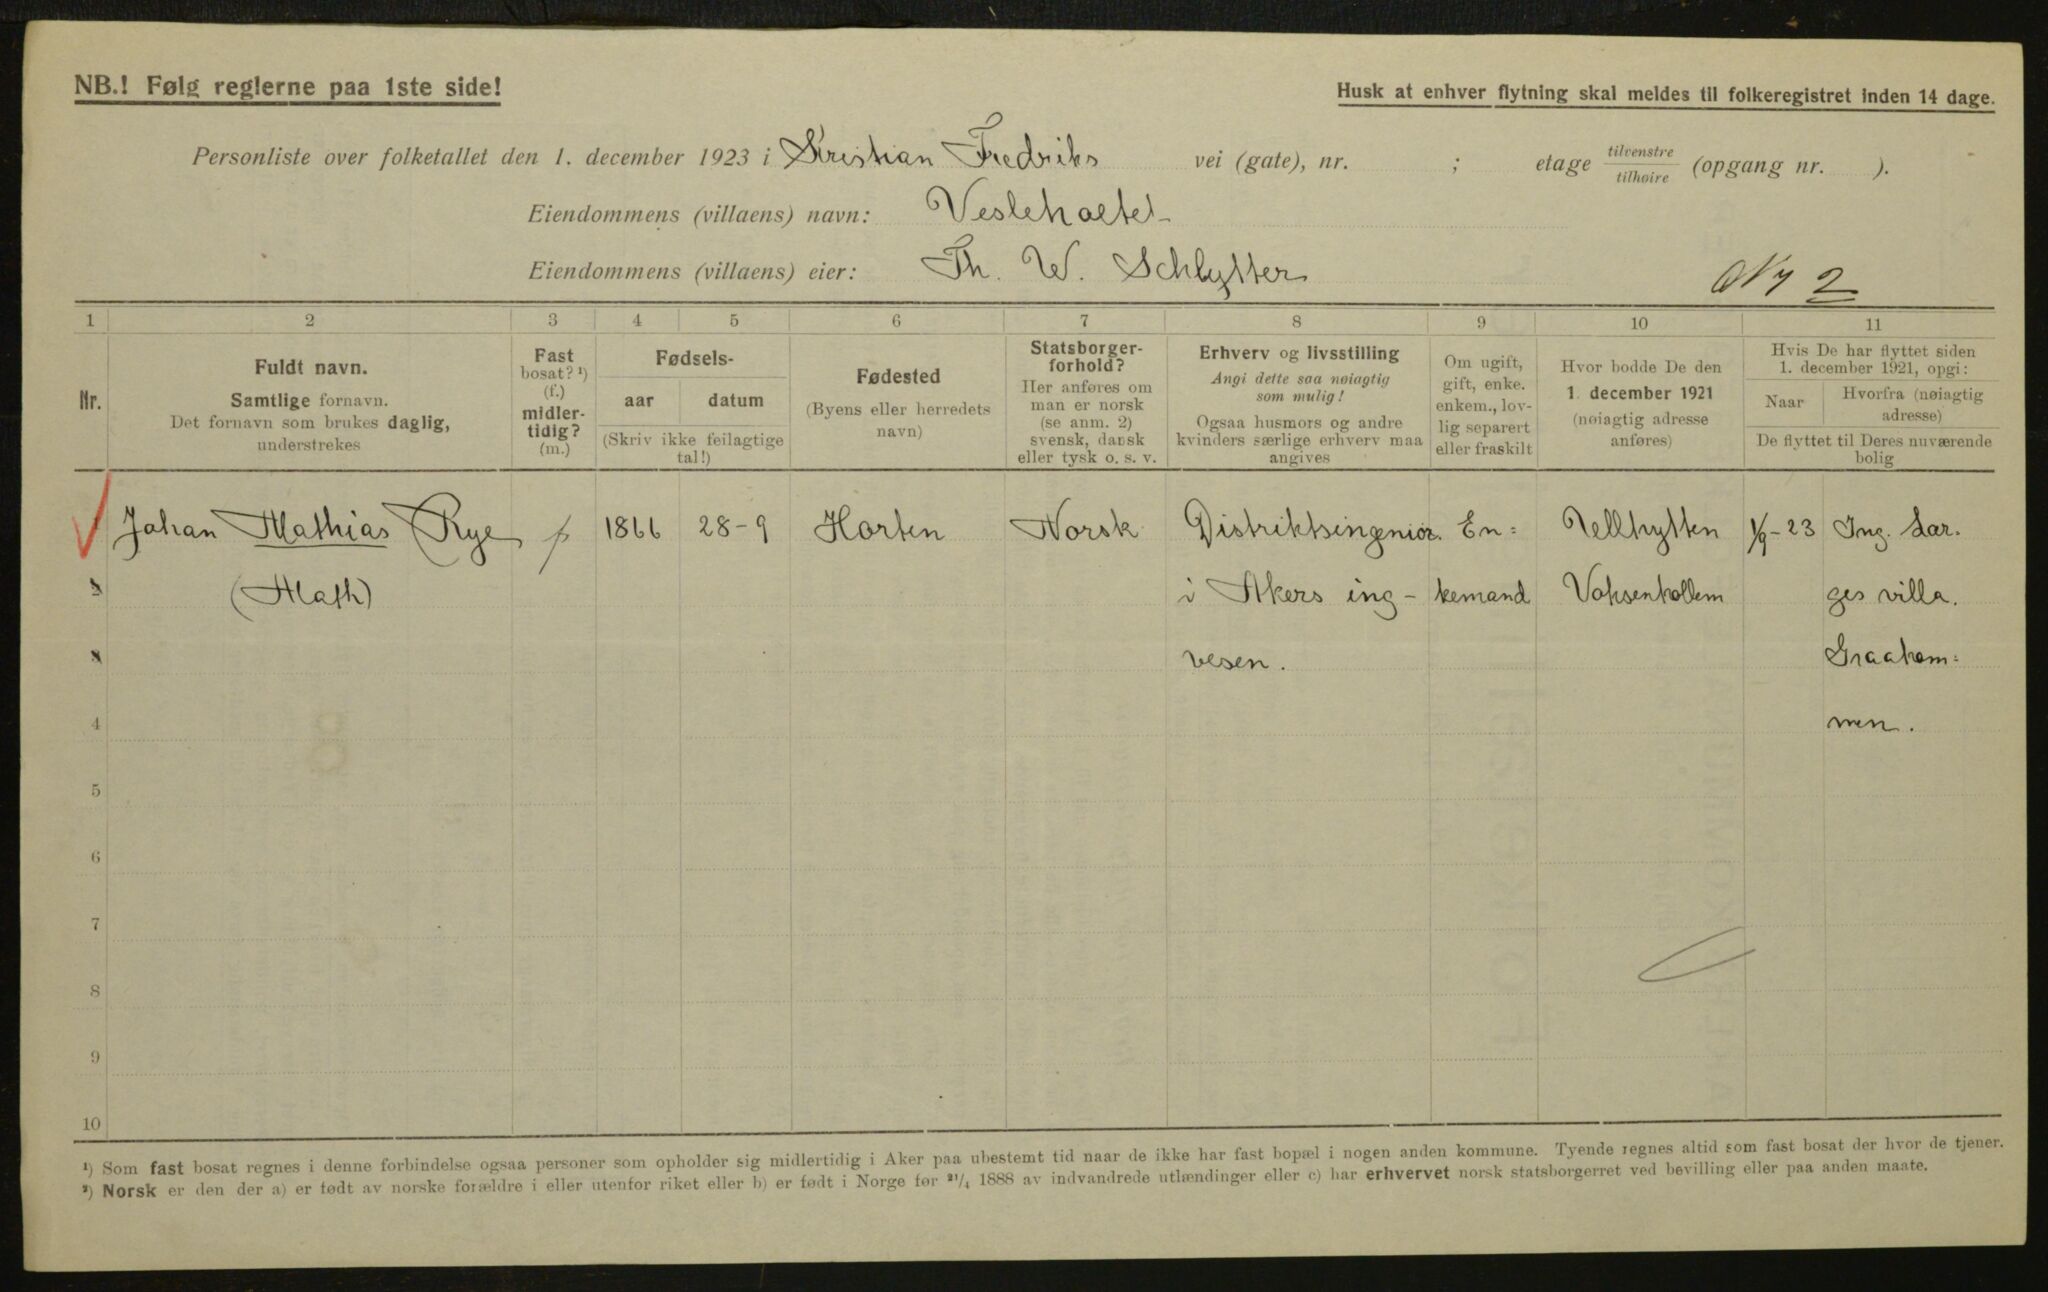 NB.! Følg reglerne paa 1ste side!
Husk at enhver flytning skal meldes til folkeregistret inden 14 dage.
Personliste over folketallet den 1. december 1923 i Kristian Fredriks vei (gate), nr. ; etage tilvenstre/tilhøire (opgang nr. ).
Eiendommens (villaens) navn: Veslehaetet
Eiendommens (villaens) eier: Th. W. Schlytter
Ny 2
1 2 3 4 5 6 7 8 9 10 11
Nr.
Fuldt navn.
Samtlige fornavn.
Det fornavn som brukes daglig,
understrekes
Fast
bosat? ¹)
(f.)
midler-
tidig?
(m.)
Fødsels-
aar datum
(Skriv ikke feilagtige
tal!)
Fødested
(Byens eller herredets
navn)
Statsborger-
forhold?
Her anføres om
man er norsk
(se anm. 2)
svensk, dansk
eller tysk o. s. v.
Erhverv og livsstilling
Angi dette saa nøiagtig
som mulig!
Ogsaa husmors og andre
kvinders særlige erhverv maa
angives
Om ugift,
gift, enke.
enkem., lov-
lig separert
eller fraskilt
Hvor bodde De den
1. december 1921
(nøiagtig adresse
anføres)
Hvis De har flyttet siden
1. december 1921, opgi:
Naar
Hvorfra (nøiagtig
adresse)
De flyttet til Deres nuværende
bolig
1 Johan Mathias Rye f 1866 28-9 Horten Norsk Distriktsingeniør En= Ullhytten 1/9-23 Ing. Lar.
2 (Math) i Akers ing- kemand Voksenkollem ges villa.
3 vesen. Graakam=
4 men.
5
6
7
8
9
10
¹) Som fast bosat regnes i denne forbindelse ogsaa personer som opholder sig midlertidig i Aker paa ubestemt tid naar de ikke har fast bopæl i nogen anden kommune. Tyende regnes altid som fast bosat der hvor de tjener.
²) Norsk er den der a) er født av norske forældre i eller utenfor riket eller b) er født i Norge før ²¹/₄ 1888 av indvandrede utlændinger eller c) har erhvervet norsk statsborgerret ved bevilling eller paa anden maate.